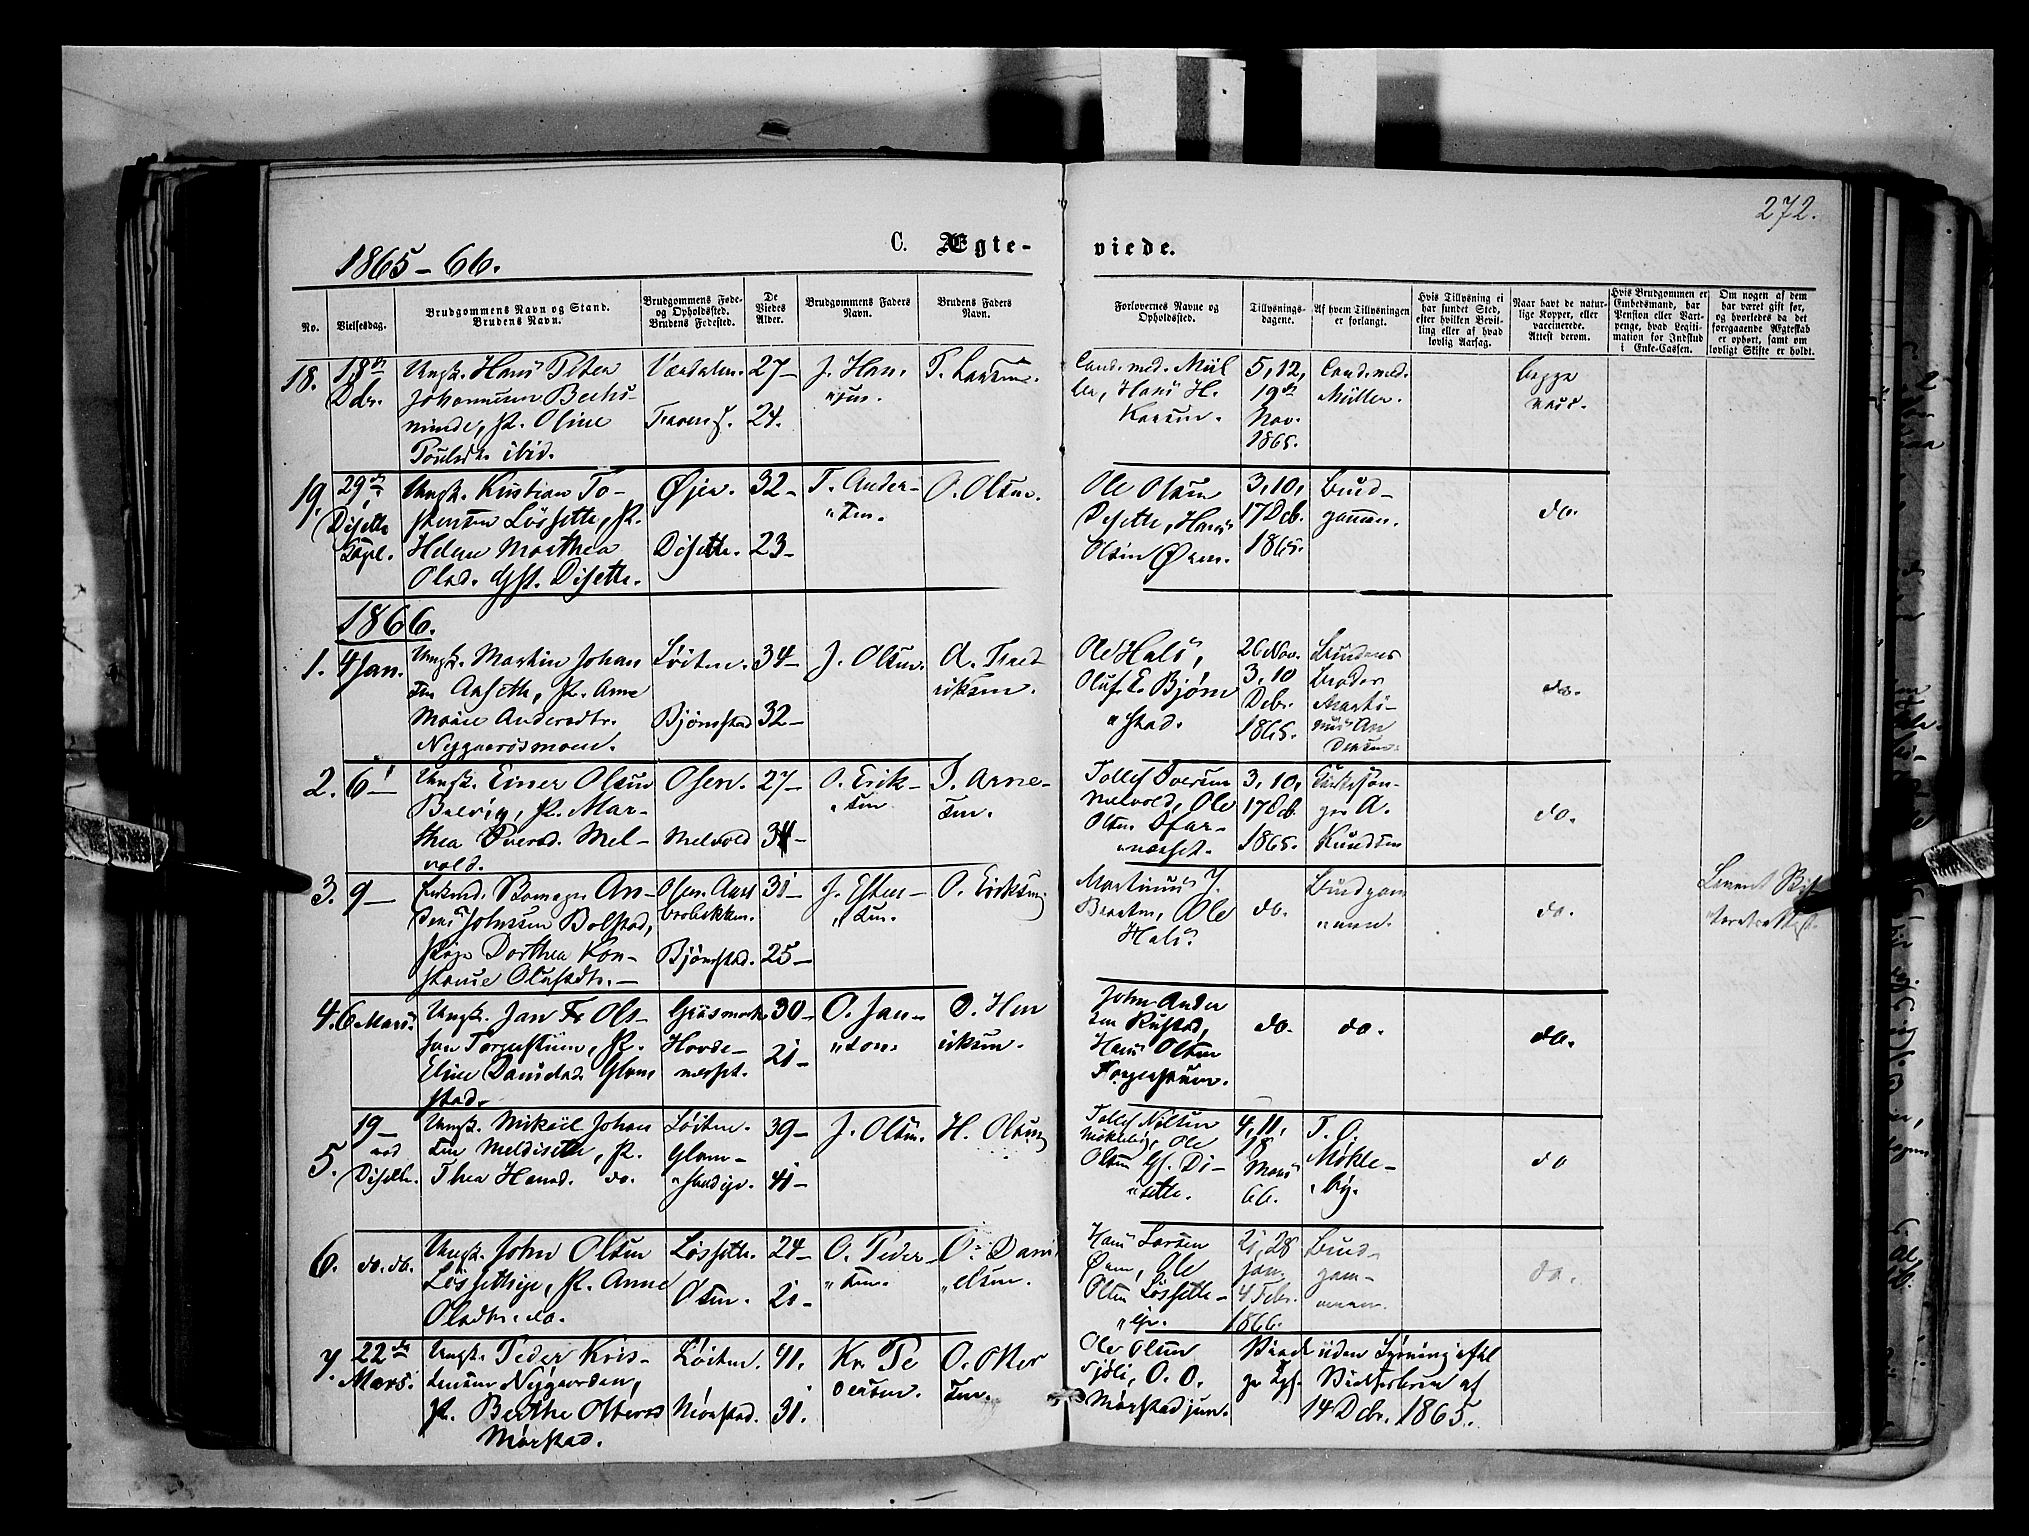 272.
1865-66.
C. Ægte-
viede.
No.
Vielsesdag.
Brudgommens Navn og Stand.
Brudens Navn.
Brudgommens Føde-
og Opholdssted.
Brudens Fødested.
De
Viedes
Alder.
Brudgommens Faders
Navn.
Brudens Faders
Navn.
Forlovernes Navne og
Opholdssted.
Tillysnings-
dagene.
Af hvem Tillysningen
er forlangt.
Hvis Tillysning ei
har fundet Sted,
efter hvilken Bevil-
ling eller af hvad
lovlig Aarsag.
Naar havt de natur-
lige Kopper, eller
vaccinerede.
Attest derom.
Hvis Brudgommen er
Embedsmand, har
Pension eller Vart-
penge, hvad Legiti-
mation for Indskud
i Enke-Cassen.
Om nogen af dem
har været gift før,
og hvorledes da det
foregaaende Ægteskab
er ophørt, samt om
lovligt Skifte er holdt.
18.
18de
Dcbr.
Ungk. Hans Peter
Johannesen
minde, P. Oline
ibid.
27-
24.
J. Han-
"sen.
T. Larsen.
Cand. med. Mül
ler, Hans H.
5, 12,
19de
Nov.
1865.
Cand. med.
Müller.
begge
vacc.
19.
29de
Disette
Capl.
Ungk. Kristian To-
stensen Løssette, P.
Helene Marthea
Olsd. Disette.
Øjer.
Disette.
32-
23-
T. Ander-
"sen.
O. Olsen.
Ole Olsen
Desette, Hans
Olsen
3, 10,
17 Dcb.
1865.
Brud-
gommen.
do.
1866.
1.
4 Jan.
Ungk. Martin Johan
sen Aaseth, P. Anne
Marie Andersdtr.
Nyggaardsmoen.
Løiten.
Bjørnstad
34-
32-
J. Olsen.
A. Fred
riksen.
Ole Hals,
Oluf E. Bjørn
"stad.
26 Nov.
3, 10
Debr.
1865.
Brudens
Broder
Marti-
nus An
dersen.
do.
2.
6
Ungk. Einer Olsen
P. Mar-
thea Iversd. Mel-
vold.
Osen.
Melvold
27-
34-
O. Erik-
"sen
I. Arne-
sen.
Tollef Iversen
Melvold, Ole
Olsen
3, 10,
17 Dcb.
1865.
Kirkesan-
ger A.
Knudsen
do.
3.
9-
An-
Johnsen Bolstad,
Pige Dorthea Kon-
stanse Olufsdtr.-
Osen
Bjørnstad.
31-
25-
J. Esten-
"sen.
O. Eriksen
Martinus J.
Ole
Hals.
do.
Brudgom
"men.
do.
4.
6 Mars
Ungk. Jan Fr Ols-
son Torgerstuen, P.
Eline Danielsd. Glom
stad.
Gräsmark
Hovde-
næsset.
30-
21-
O. Jan-
"son
D. Hen
riksen.
John Ander
sen Rustad,
Hans Olsen
Torgerstuen.
do.
do.
do.
5.
19-
ved
Disette.
Ungk. Mikael Johan
sen Meldisette, P.
Thea Hansd. do.
Løiten.
Glom-
39-
41-
J. Olsen.
H. Olsen
Tollef Nilsen
Møklebÿ, Ole
Olsen Gl. Di-
"sette.
4, 11,
18
Mars
66.
T. O.
Møkle-
"by.
do
6.
do. do.
Ungk. John Olsen
Løssetteje, P. Anne
Olsdtr. do.
Løssette.
Osen.
24-
21-
O. Peder-
"sen.
O. Dani
"elsen.
Hans Larsen
Øien, Ole
Olsen Løssette-
"eje.
21, 28
Jan.
4 Febr.
1866.
Brud-
gom-
men.
do.
7.
22de
Mars.
Ungk. Peder Kris-
tensen Nygaarden,
P. Berthe Ottersd
Mørstad.
Løiten.
Mørstad.
41.
31.
Kr. Pe
dersen.
O. Otter
sen.
Ole Olsen
Sjøli, O. O.
Mørstad jun.
Viede uden Lysning efter
14 Dcbr. 1865.